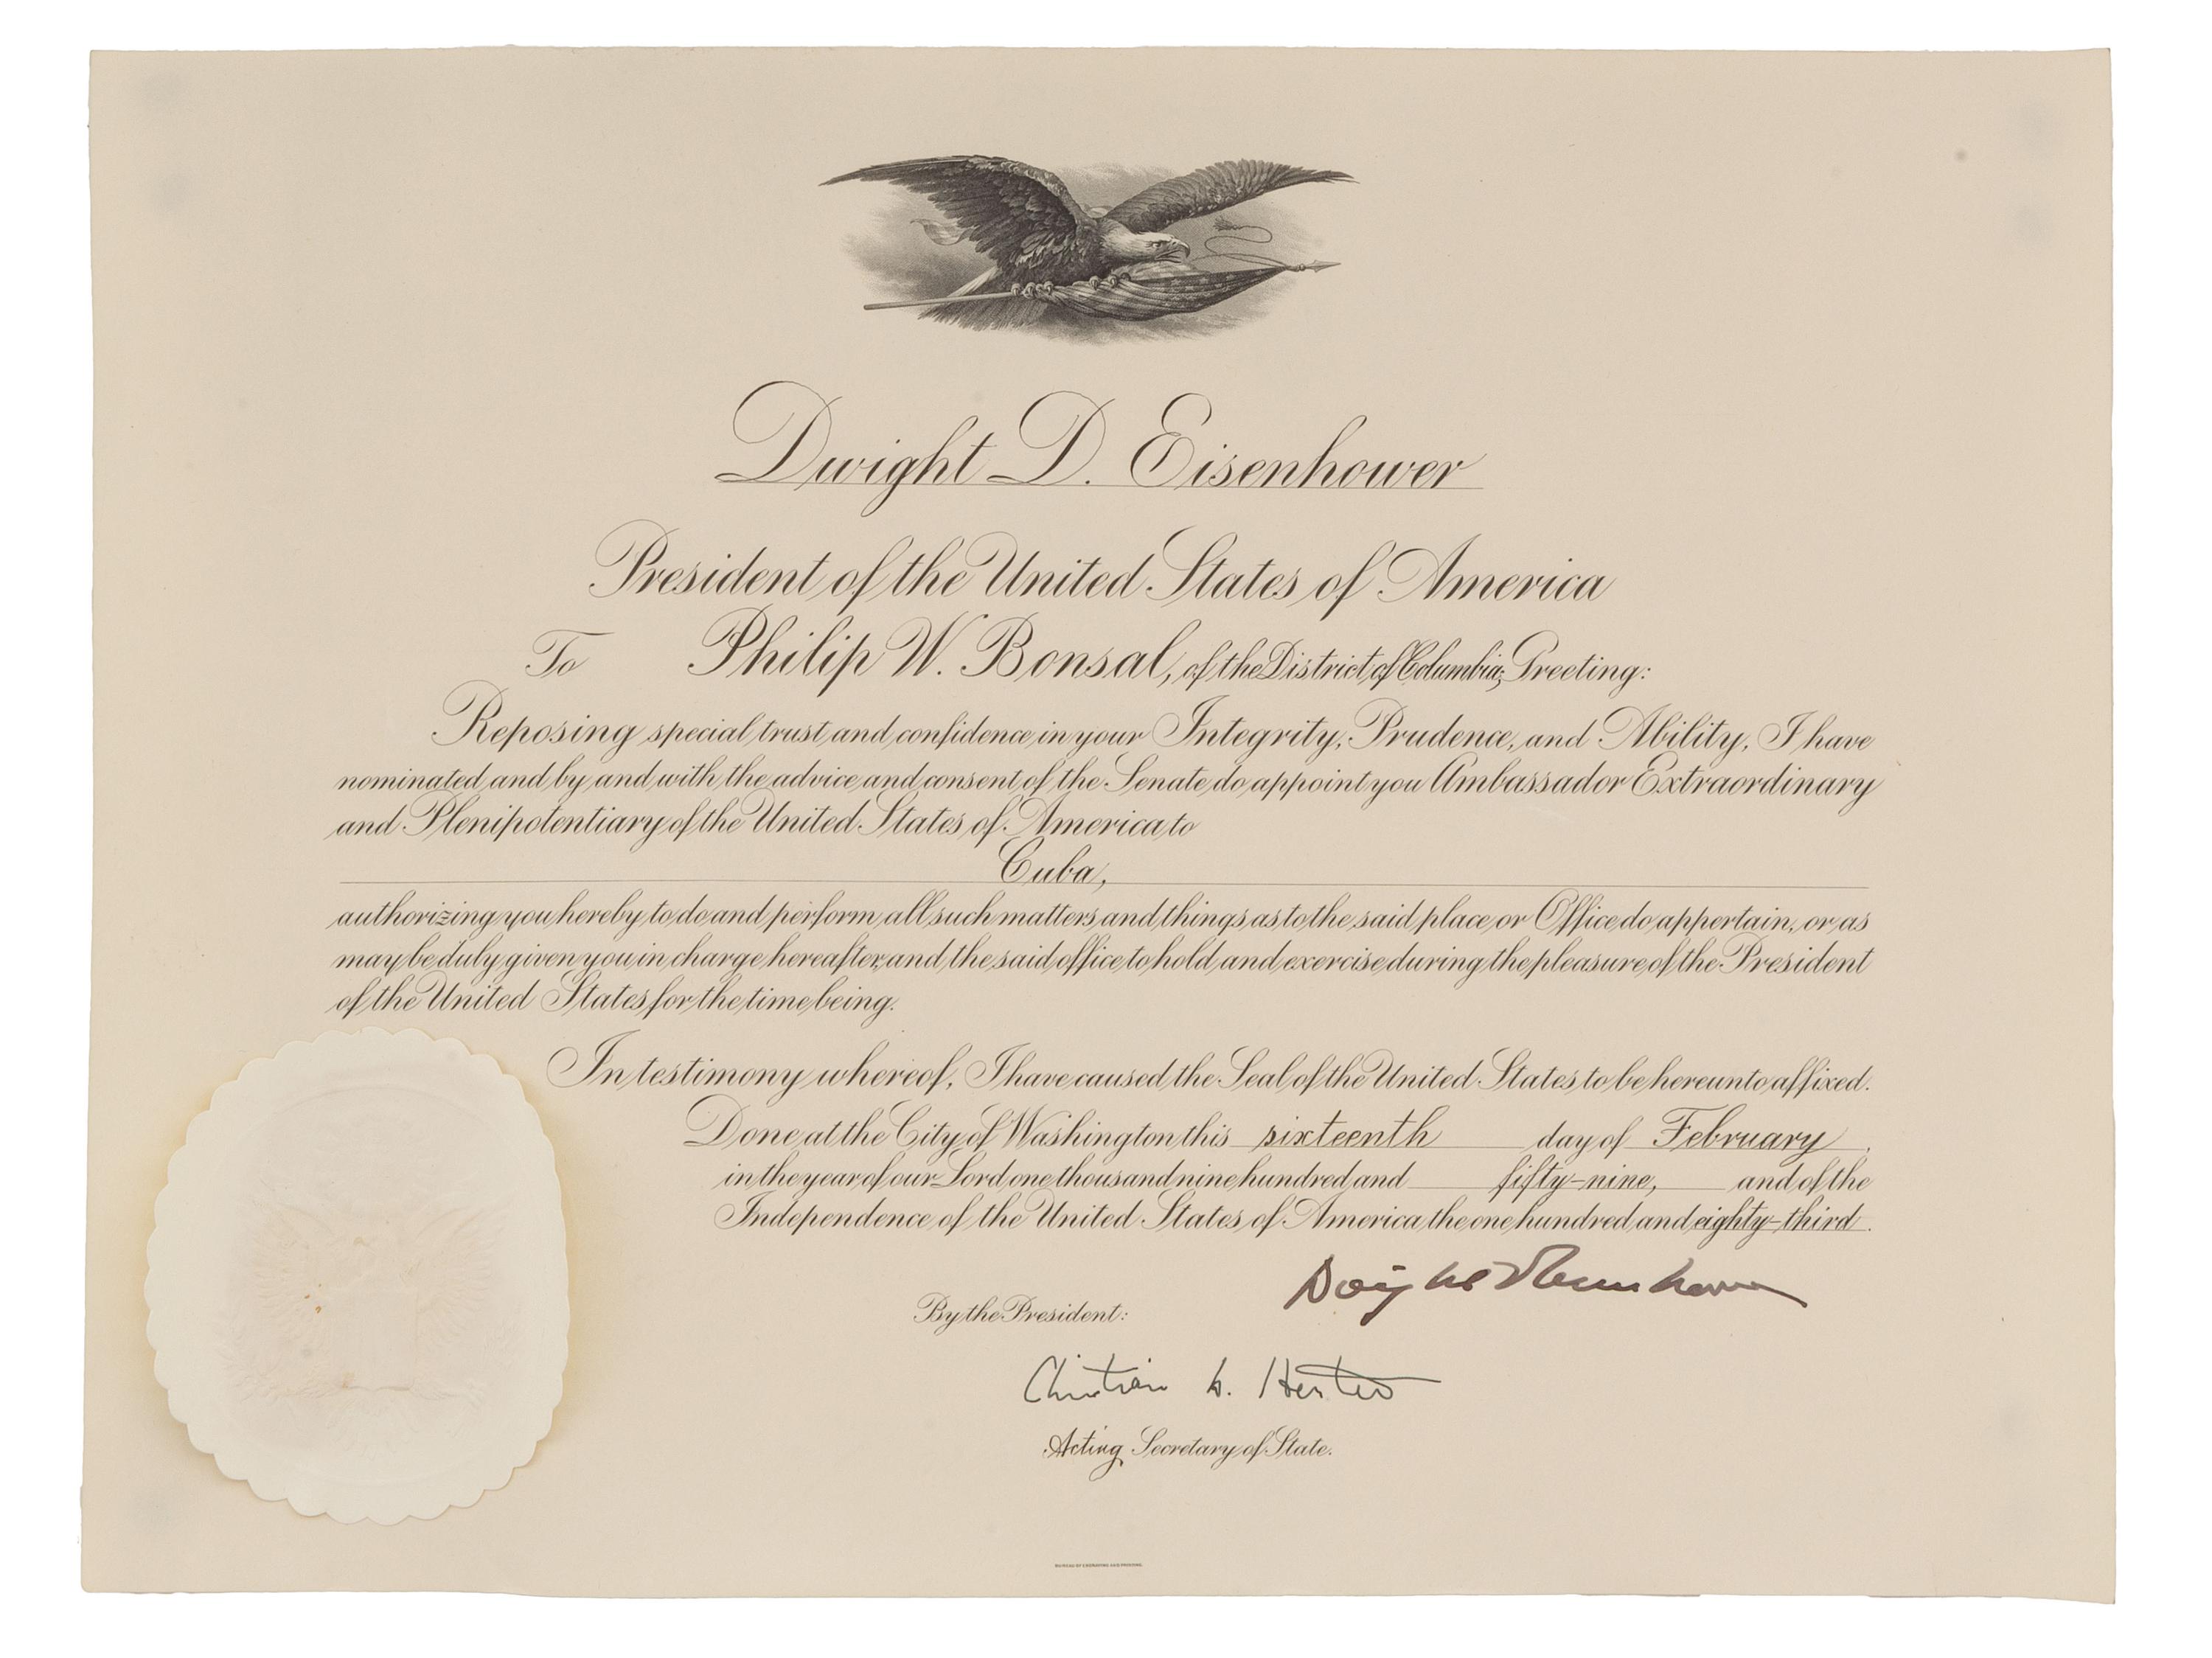 Dwight D. Eisenhower
President of the United States of America
To Philip W. Bonsal, of the District of Columbia, Greeting:
Reposing special trust and confidence in your Integrity, Prudence, and Ability, I have
nominated and by and with the advice and consent of the Senate do appoint you Ambassador Extraordinary
and Plenipotentiary of the United States of America to
Cuba,
authorizing you hereby to do and perform all such matters and things as to the said place or Office do appertain, or as
may be duly given you in charge hereafter, and the said office to hold and exercise during the pleasure of the President
of the United States for the time being.
In testimony whereof, I have caused the Seal of the United States to be hereunto affixed.
Done at the City of Washington this sixteenth day of February,
in the year of our Lord one thousand nine hundred and fifty-nine, and of the
Independence of the United States of America the one hundred and eighty-third.
Dwight Eisenhower
By the President:
Christian A. Herter
Acting Secretary of State.
BUREAU OF ENGRAVING AND PRINTING